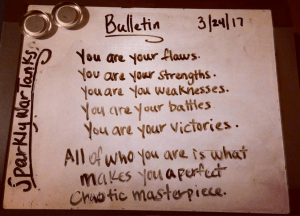 Bulletin 3/24/17
You are your flaws.
You are your strengths.
You are You weaknesses.
You are your battles
You are your victories.
All of who you are is what
makes you a perfect
Chaotic masterpiece.
Sparkly War Tanks.